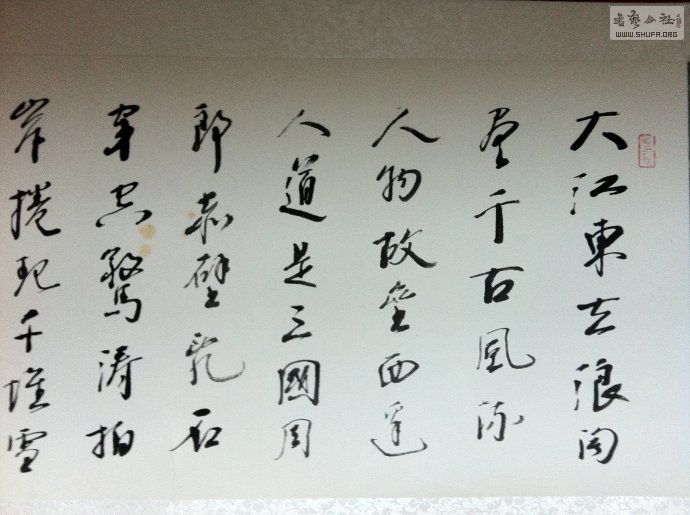 大江東去浪淘
尽千古風流
人物故壘西邊
人道是三國周
郎赤壁乱石
穿空驚濤拍
岸捲起千堆雪
WWW.SHUFA.ORG